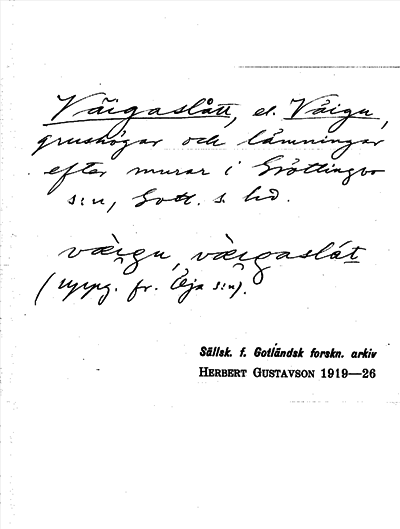 Väigaslått, el. Väigu,
grushögar och lämningar
efter murar i Gröttingbo
s:n, Gotl. s. hd.
værgu, værgaslåt
(uppg. fr. Öja s:n).
Sällsk. f. Gotländsk forskn. arkiv
HERBERT GUSTAVSON 1919—26